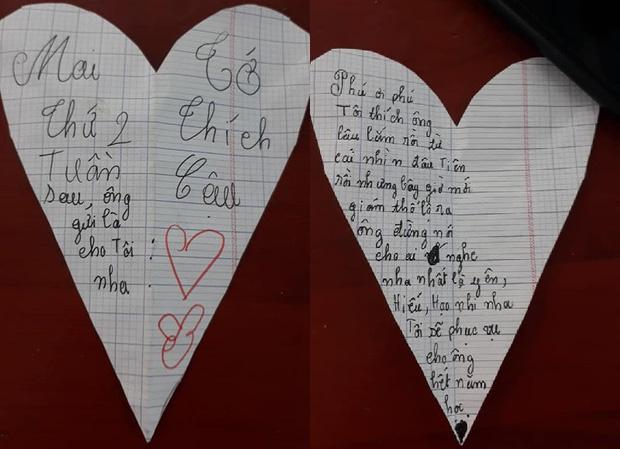 Mai
Thứ 2
Tuần
sau, ông
gửi là
cho Tôi
nha
Tớ
thích
Cậu
Phú ơi phú
Tôi thích ông
lâu lắm rồi từ
cái nhìn đầu Tiên
rồi nhưng bây giờ mới
giám thổ lộ ra
ông đừng nó
cho ai nghe
nha nhất là yên,
Hiếu, Hạo nhi nha
Tôi sẽ phục vụ
cho ông
hết năm
học.